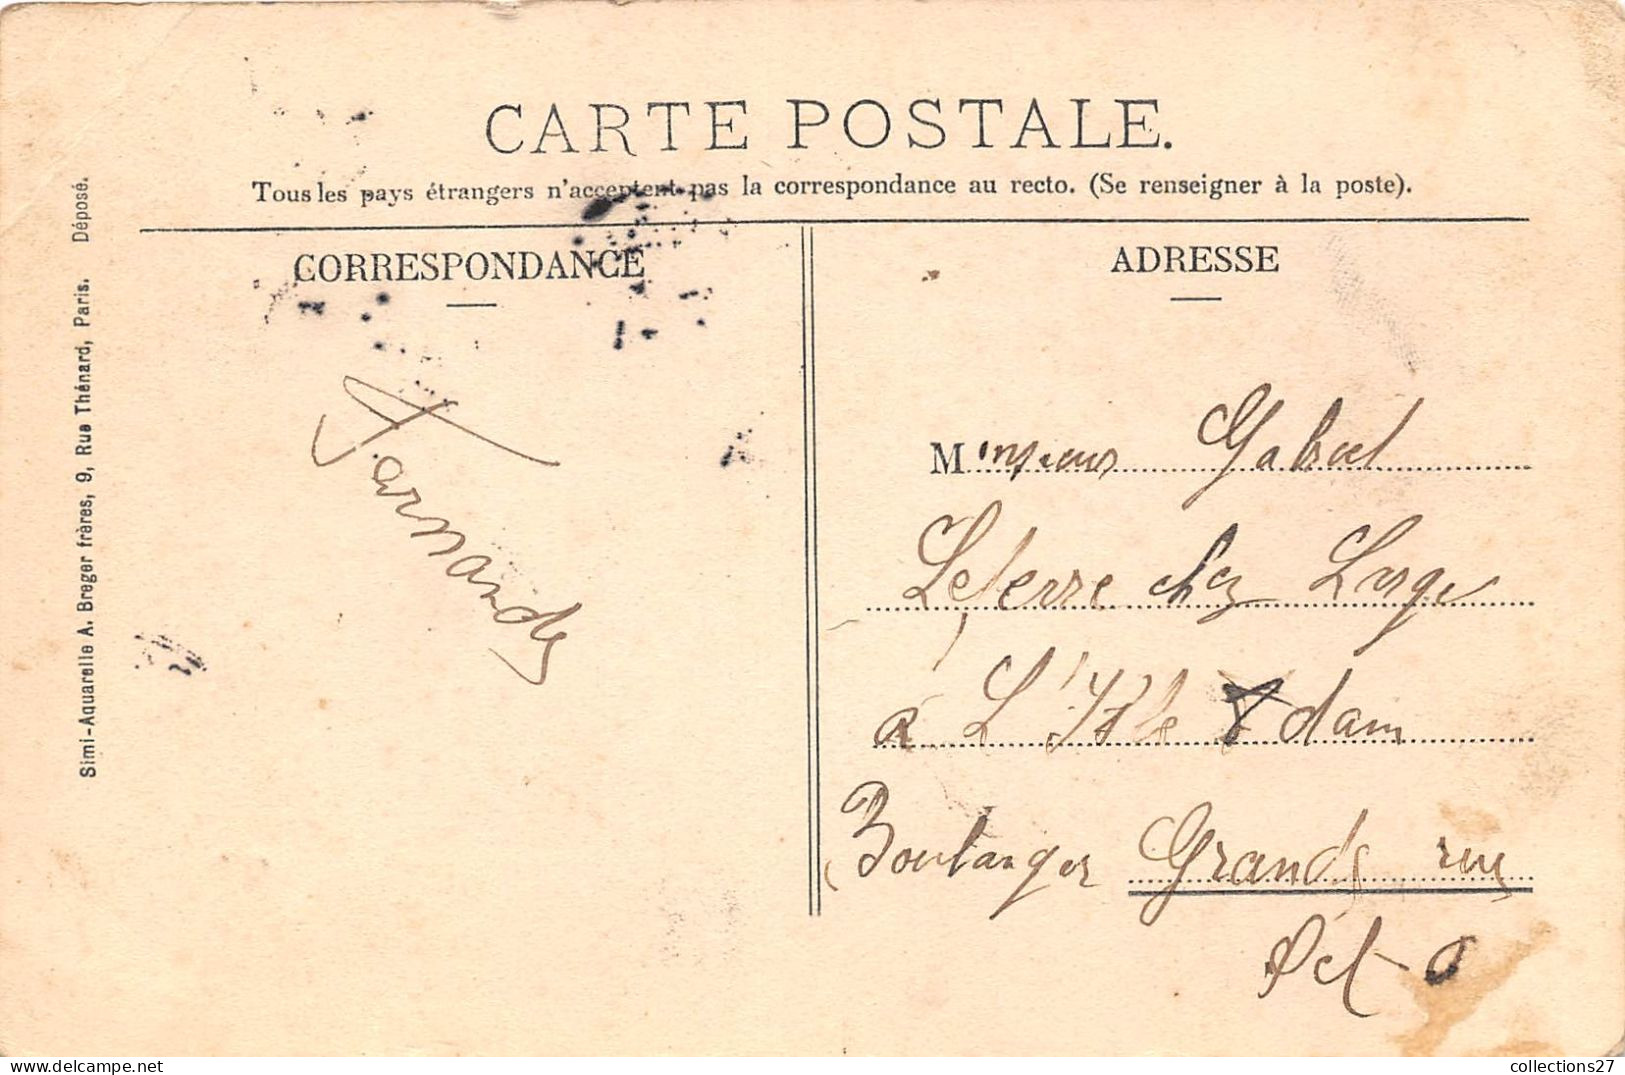 CARTE POSTALE.
Tous les pays étrangers n'acceptent pas la correspondance au recto. (Se renseigner à la poste).
Simi-Aquarelle A. Breger frères, 9, Rue Thénard, Paris. Déposé.
CORRESPONDANCE
Fernande
ADRESSE
Monsieur Gabriel
Leferre chez
à L'Isle Adam
Boulanger Grande rue
Set O
collections27